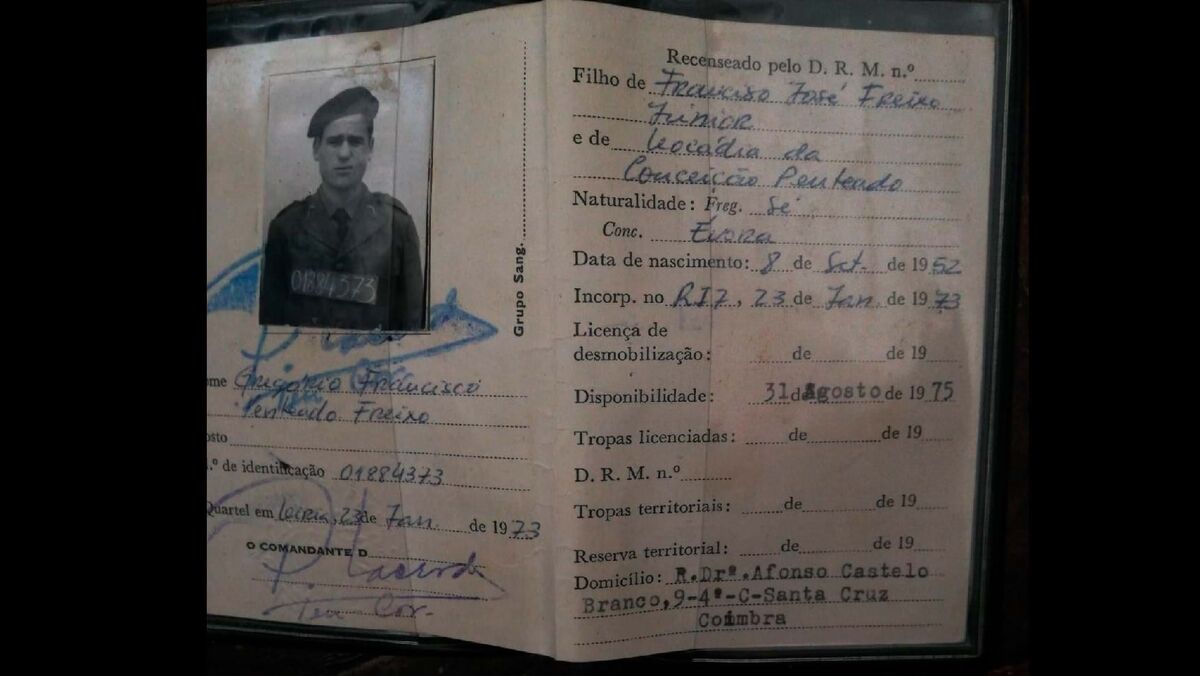 01884573
Grupo Sang.
ome Gregório Francisco
Penteado Freixo
osto
.º de identificação 01884373
Quartel em Leiria, 23 de Jan. de 1973
O COMANDANTE D
P. Lacerda
Ten Cor.
Recenseado pelo D. R. M. n.º
Filho de Francisco José Freixo
Júnior
e de Leocádia da
Conceição Penteado
Naturalidade: Freg. Sé
Conc. Évora
Data de nascimento: 8 de Set. de 1952
Incorp. no RI7, 23 de Jan. de 1973
Licença de
desmobilização: de de 19
Disponibilidade: 31 de Agosto de 1975
Tropas licenciadas: de de 19
D. R. M. n.º
Tropas territoriais: de de 19
Reserva territorial: de de 19
Domicílio: R.Drª.Afonso Castelo
Branco,9-4ª-C-Santa Cruz
Coimbra